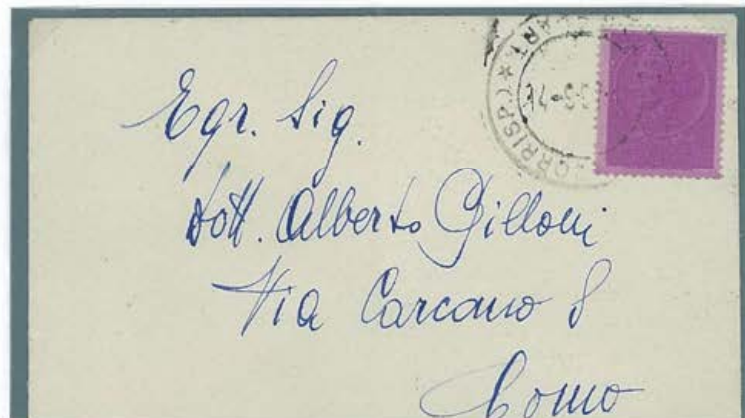 Egr. Sig.
Dott. Alberto Gilloni
Via Carcano 8
Como
CORRISP